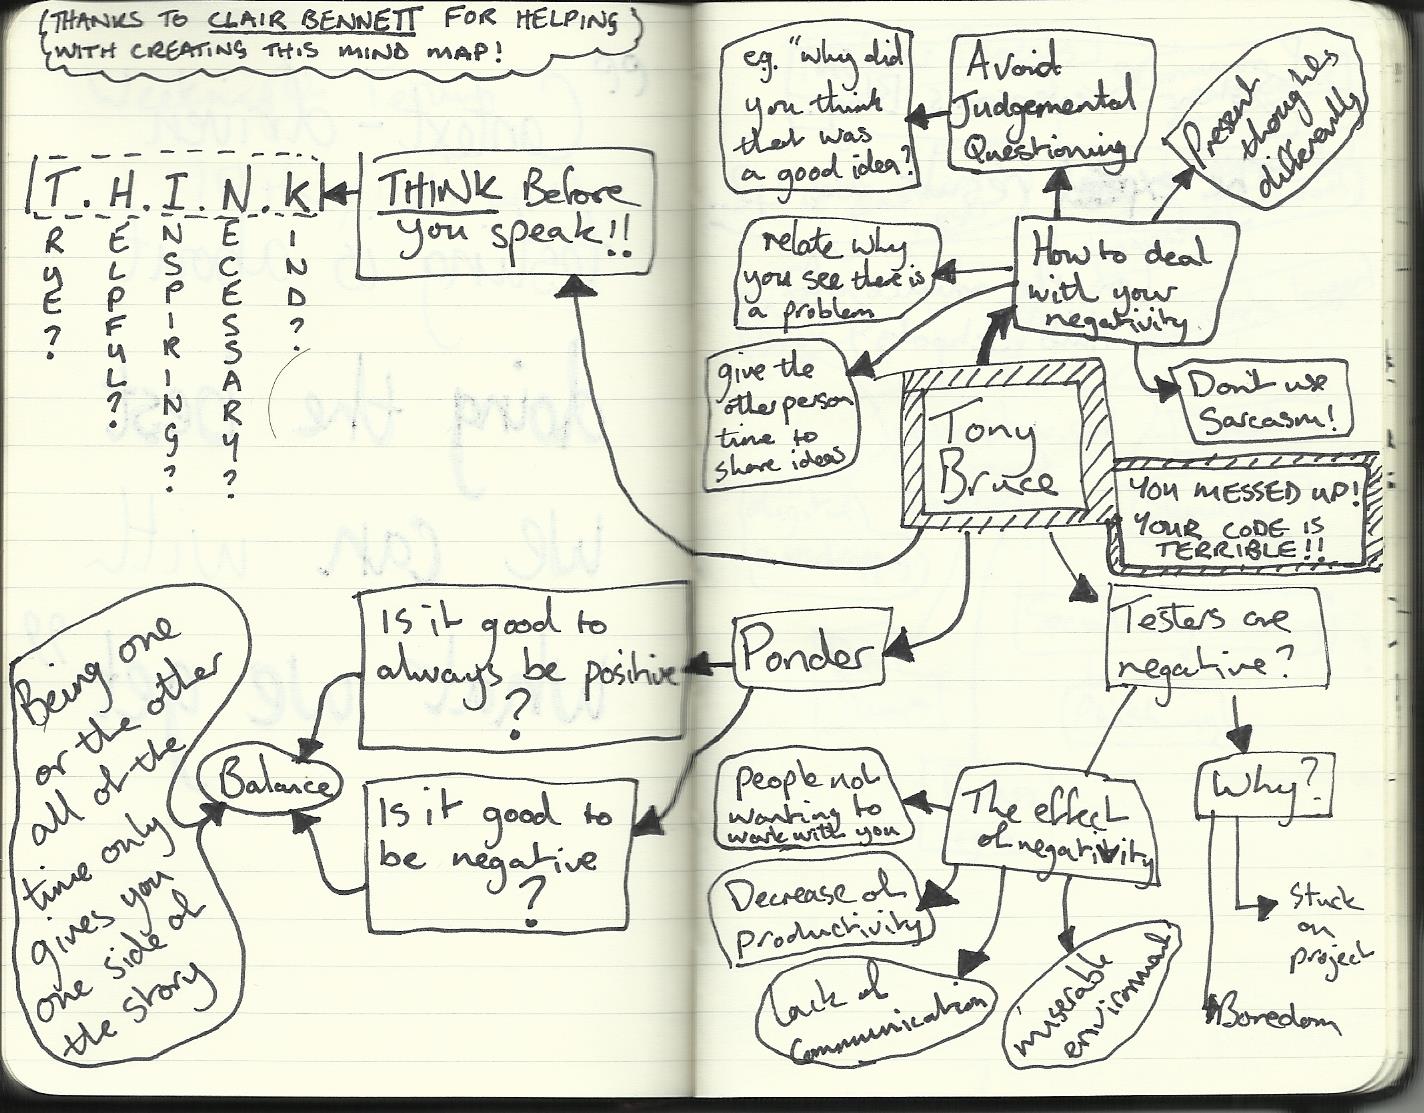 THANKS TO CLAIR BENNETT FOR HELPING
WITH CREATING THIS MIND MAP!
T.H.I.N.K
RUE?
ELPFUL?
NSPIRING?
ECESSARY?
IND?
THINK Before
you speak!!
e.g. "why did
you think
that was
a good idea?
Avoid
Judgemental
Questioning
Present
thoughts
differently
relate why
you see there is
a problem
How to deal
with your
negativity
give the
other person
time to
share ideas
Don't use
Sarcasm!
Tony
Bruce
YOU MESSED UP!
YOUR CODE IS
TERRIBLE!!
Is it good to
always be positive
?
Ponder
Testers are
negative?
Being one
or the other
all of the
time only
gives you
one side of
the story
Balance
Is it good to
be negative
?
People not
wanting to
work with you
The effect
of negativity
Why?
Decrease of
productivity
Lack of
communication
miserable
environment
Stuck
on
project
Boredom